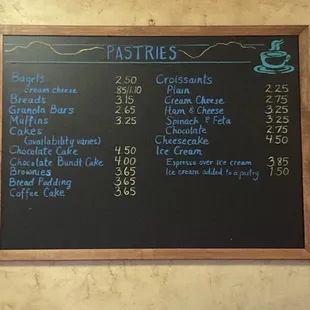 PASTRIES
Bagels 2.50
Cream cheese .85/1.10
Breads 3.15
Granola Bars 2.65
Muffins 3.25
Cakes
(availability varies)
Chocolate Cake 4.50
Chocolate Bundt Cake 4.00
Brownies 3.65
Bread Pudding 3.65
Coffee Cake 3.65
Croissants
Plain 2.25
Cream Cheese 2.75
Ham & Cheese 3.25
Spinach & Feta 3.25
Chocolate 2.75
Cheesecake 4.50
Ice Cream
Espresso over ice cream 3.85
Ice cream added to a pastry 1.50